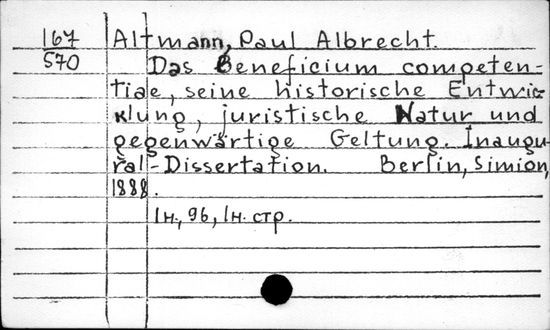 167 Altmann, Paul Albrecht.
570 Das Beneficium competen-
tiae, seine historische Entwic-
klung, juristische Natur und
gegenwärtige Geltung. Inaugu-
ral-Dissertation. Berlin, Simion,
1888.
1н., 96, 1н. стр.